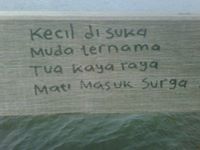 Kecil disuka
Muda ternama
Tua kaya raya
Mati Masuk Surga